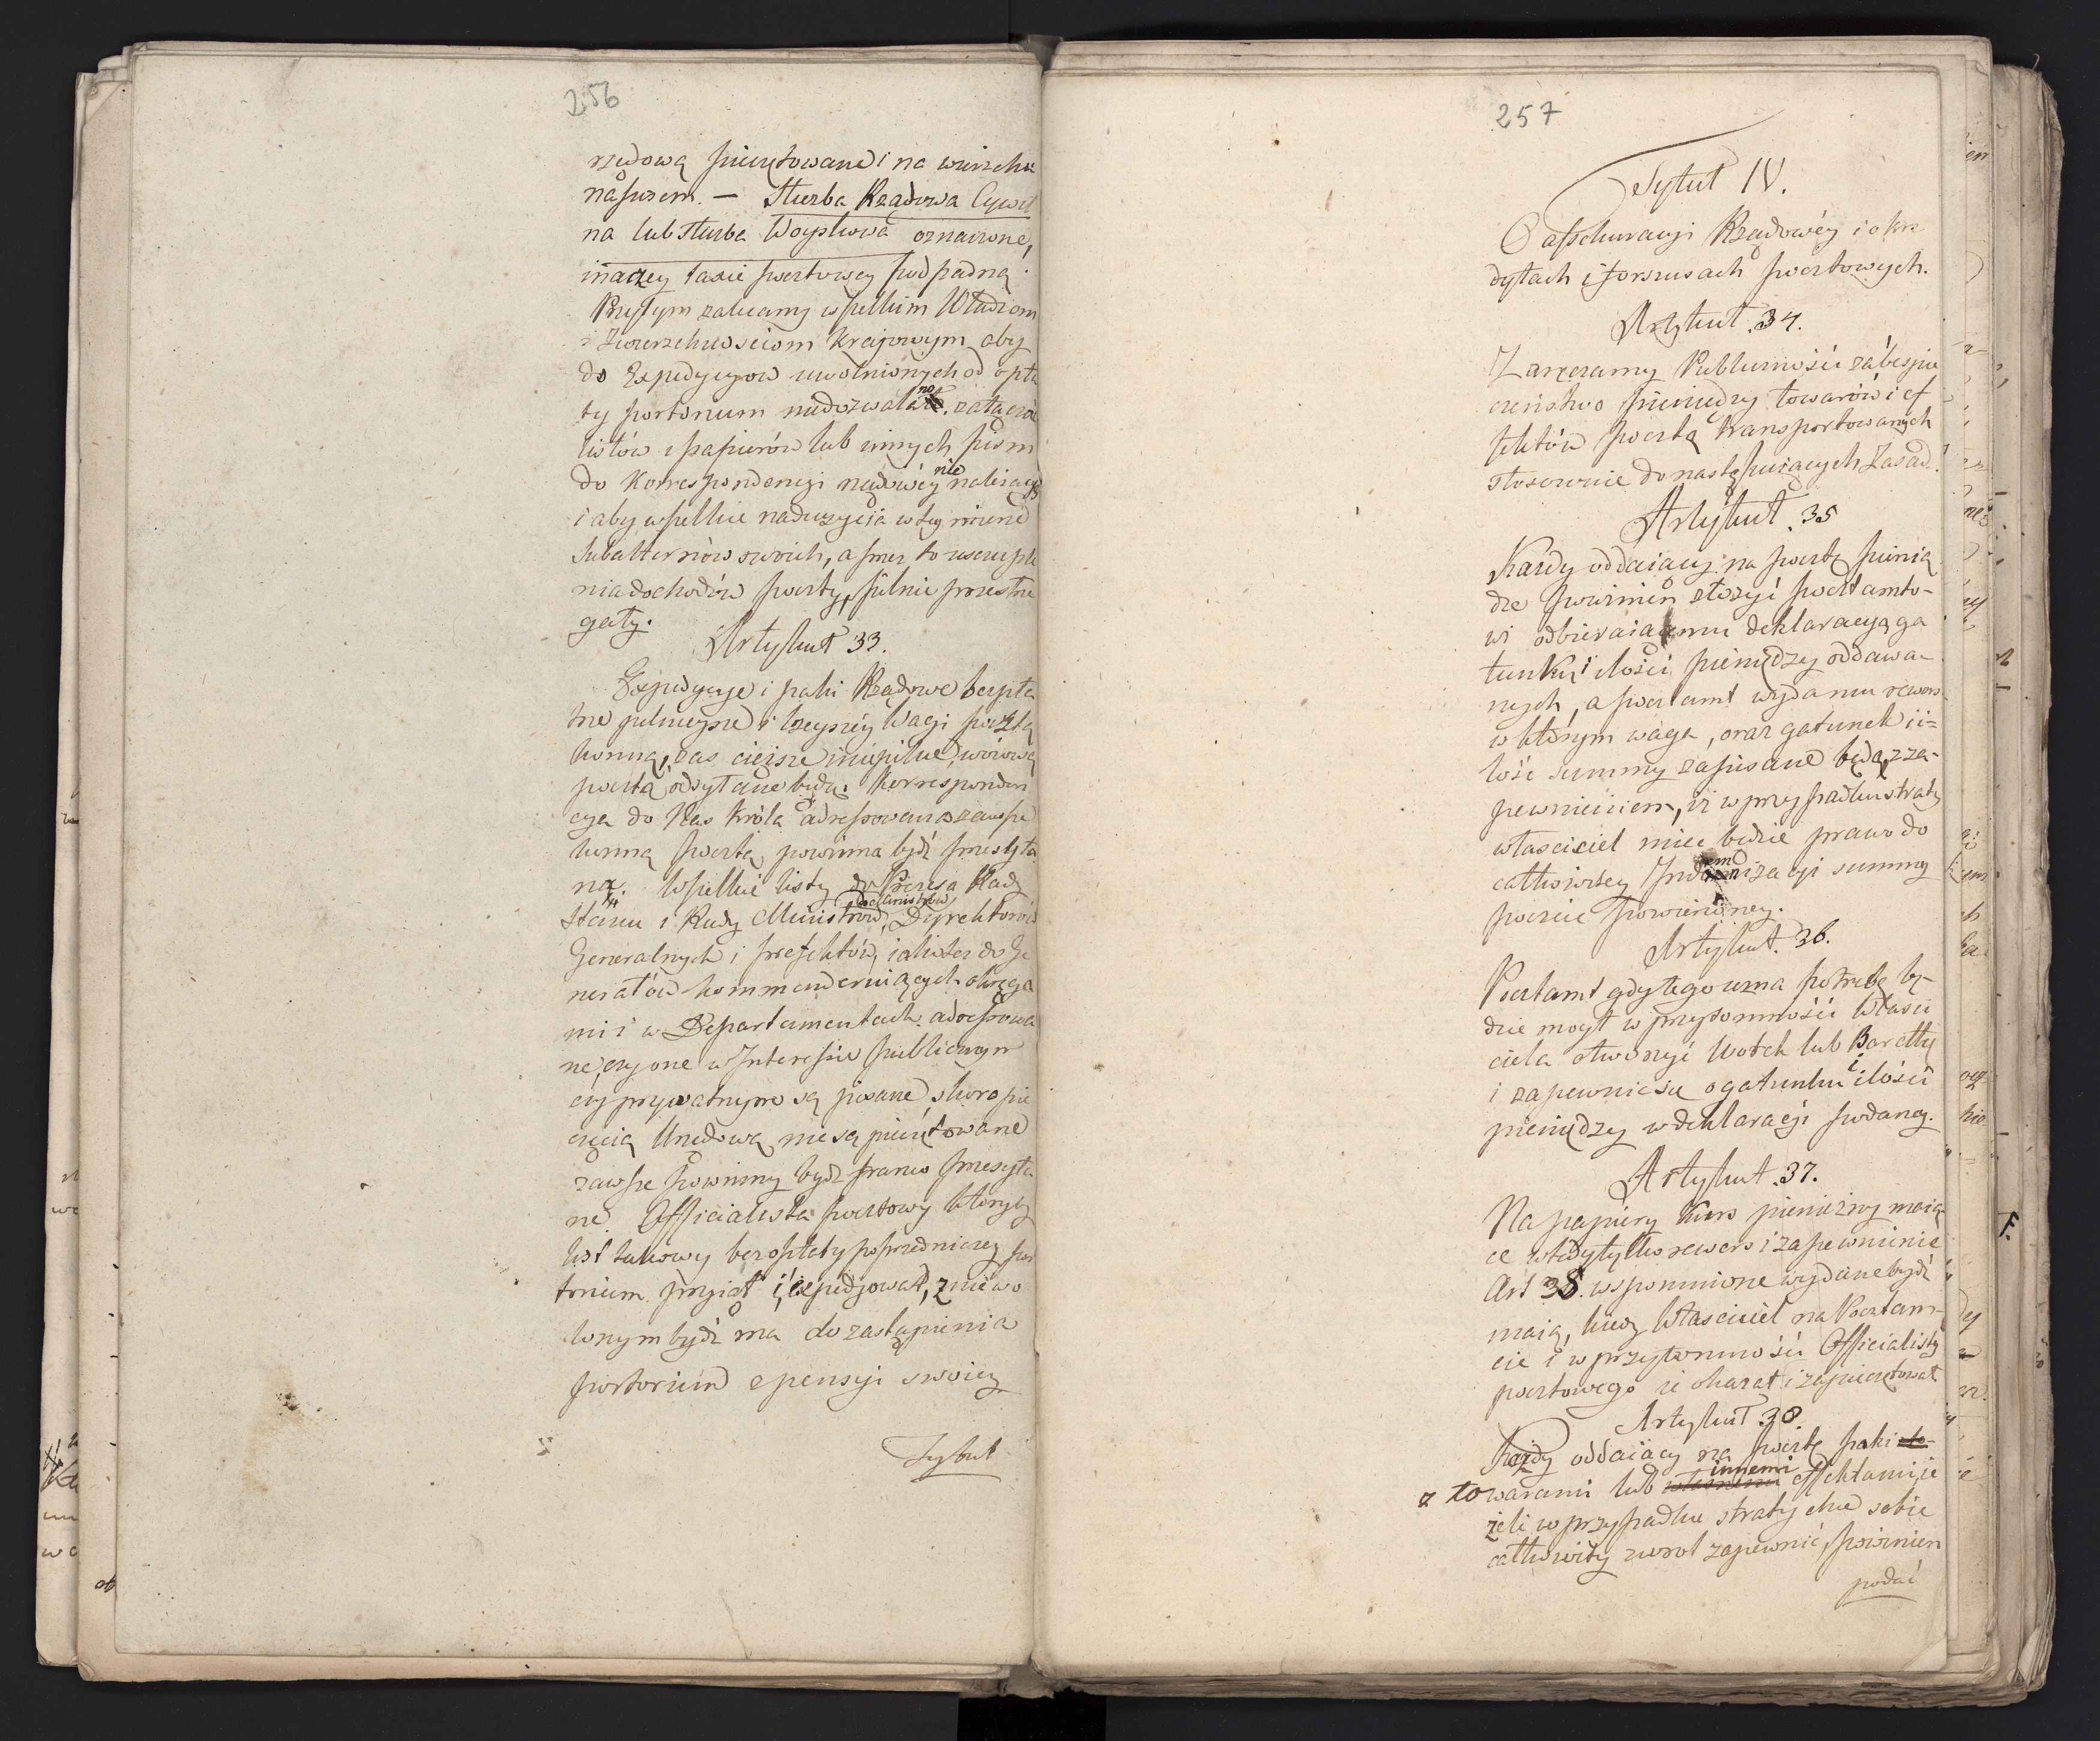 256
rzędową pieczętowane i na wierzchu
napisem. — Służba Rządowa Cywil
na lub Służba Woyskowa oznaczone,
inaczey taxie pocztowey podpadną.
Przytym zalecamy wszelkim Władzom
i Zwierzchnościom Krajowym aby
do Expedycyow uwolnionych od opła
ty portorium niedozwalano załączać
listów i papierów lub innych pism
do Korrespondencyi rządowéy nie należących
i aby wszelkie nadużycia w tey mierze
Subalternów swoich, a przez to uszczuple
nia dochodów poczty, pilnie przestrze
gały.
Artykuł 33.
Expedycye i paki Rządowe bezpła
tne pilnieysze i lżeyszéy wagi pocztą
konną, zas cięższe i niepilne, wozową
pocztą odsyłane będą. Korresponden
cya do Nas Króla adressowana zawsze
konną pocztą powinna bydź przesyła
na. Wszelkie listy do Prezesa Rady
Stanu i Rady Ministrów, do Ministrów, Dyrektorów
Generalnych i prefektów, iakotez do Ge
nerałów kommenderuiących okręga
mi i w Departamentach adressowa
ne, czy one w Interessie publicznym
czy prywatnym są pisane, skoro pie
częcią Urzędową nie są pieczętowane
zawsze powinny bydź franco przesyła
ne. Officialista pocztowy któryby
list takowy bez opłaty poprzedniczey por
torium przyiął i expedjował, zniewo
lonym bydź ma do zastąpienia
portorium z pensyi swoiey
Tytuł
257
Tytuł IV.
O assekuracyi Rządowéy i o kre
dytach i forszusach pocztowych.
Artykuł 34.
Zaręczamy Publiczności zábespie
czeństwo pieniędzy towarów i ef
fektów pocztą transportowanych
stosownie do następuiących Zasad.
Artykuł 35
Każdy oddaiący na pocztę pienią
dze powinien złożyć pocztamto-
wi odbieraiącemu deklaracyą ga
tunku i ilości pieniędzy oddawa-
nych, a pocztamt wyda mu rewers
w którym waga, oraz gatunek i i=
lość summy zapisane będą, z za-
pewnieniem, iż w przypadku straty
własciciel mieć będzie prawo do
całkowitey Indemnizacyi summy
poczcie powierzoney.
Artykuł 36.
Pocztamt gdy tego uzna potrzebę bę-
dzie mógł w przytomności Własci
ciela otworzyć Worek lub Baryłkę
i zapewnić się o gatunku i ilości
pieniędzy w deklaracyi podaney.
Artykuł 37.
Na papiery Kurs pieniężny maią
ce wtedy tylko rewers i zapewnienie
Art 35. wspomnione wydane bydź
maią, kiedy Własciciel na Pocztam-
cie i w przytomności Officialisty
pocztowego ie okazał i zapieczętował
Artykuł 38.
Każdy oddaiący na pocztę paki
z towarami lub innemi effektami, ie
żeli w przypadku straty chce sobie
całkowity zwrot zapewnić, powinien
podać